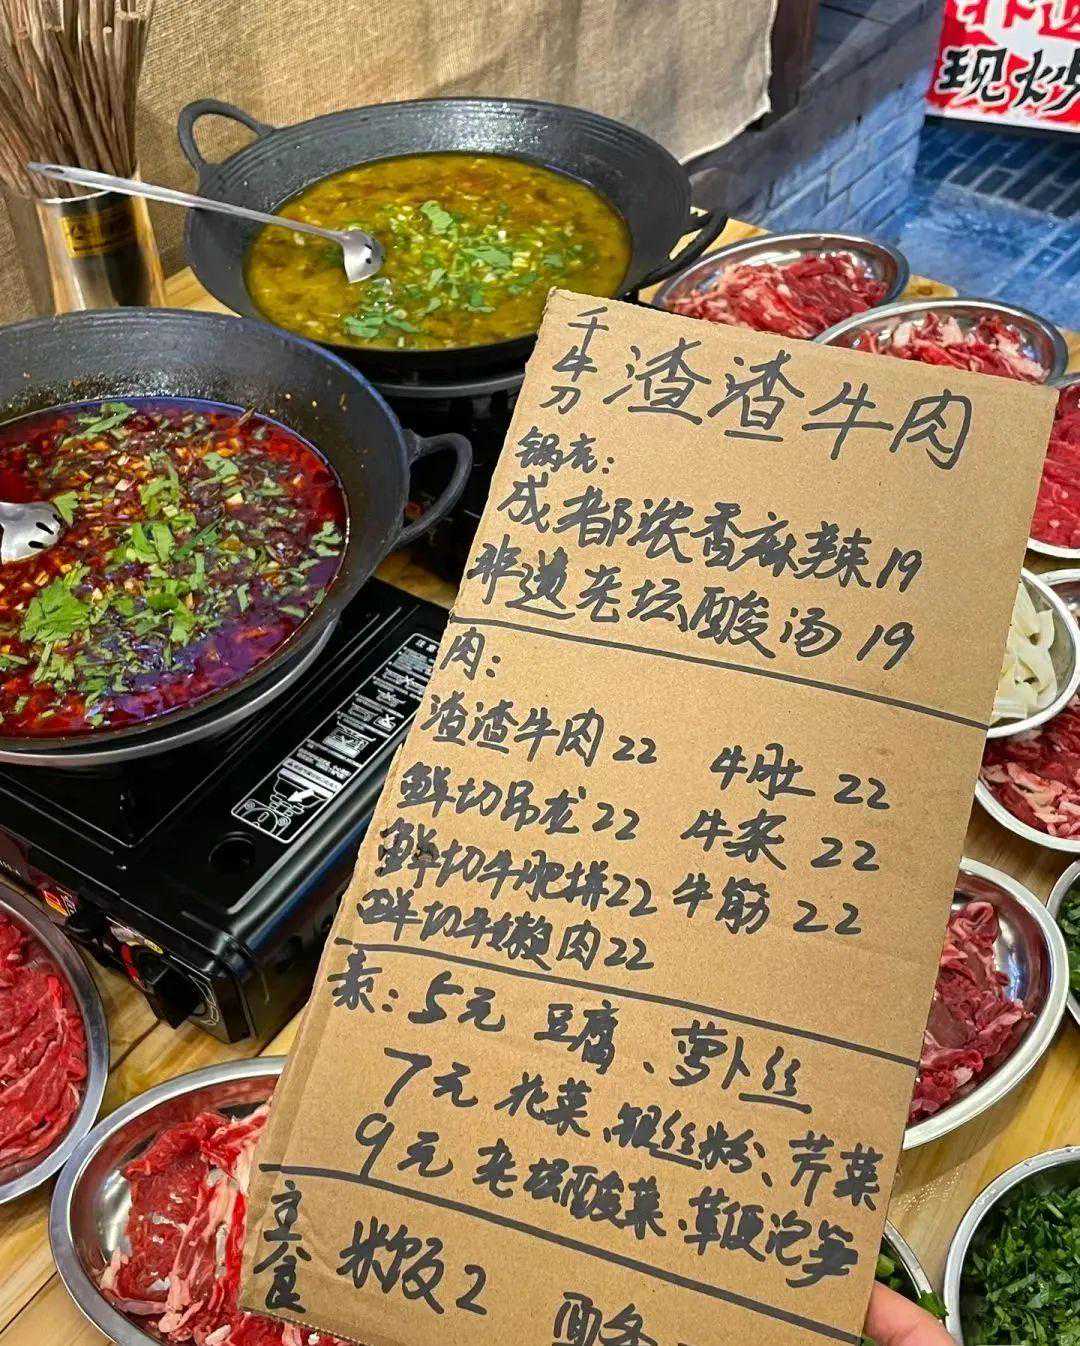 现炒
千牛刀 渣渣牛肉
锅底:
成都浓香麻辣19
非遗老坛酸汤 19
肉:
渣渣牛肉 22 牛肚 22
鲜切吊龙 22 牛杂 22
鲜切牛肥拼22 牛筋 22
鲜切牛嫩肉22
素: 5元 豆腐、萝卜丝
7元 花菜、银丝粉、芹菜
9元 老坛酸菜、草便泡笋
主食 米饭2